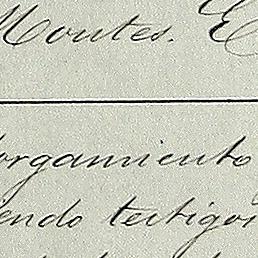 Montes. E
orgamiento
endo testigos